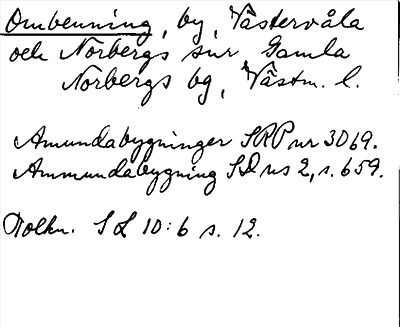 Ombenning, by, Västervåla
och Norbergs snr Gamla
Norbergs bg, Västm. l.
Amundabygninger SRP nr 3069.
Ammundabygning SD ns 2, s. 659.
Tolkn. SL 10:6 s. 12.